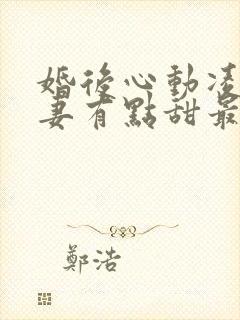 婚後心動凌
妻有點甜最
鄭浩